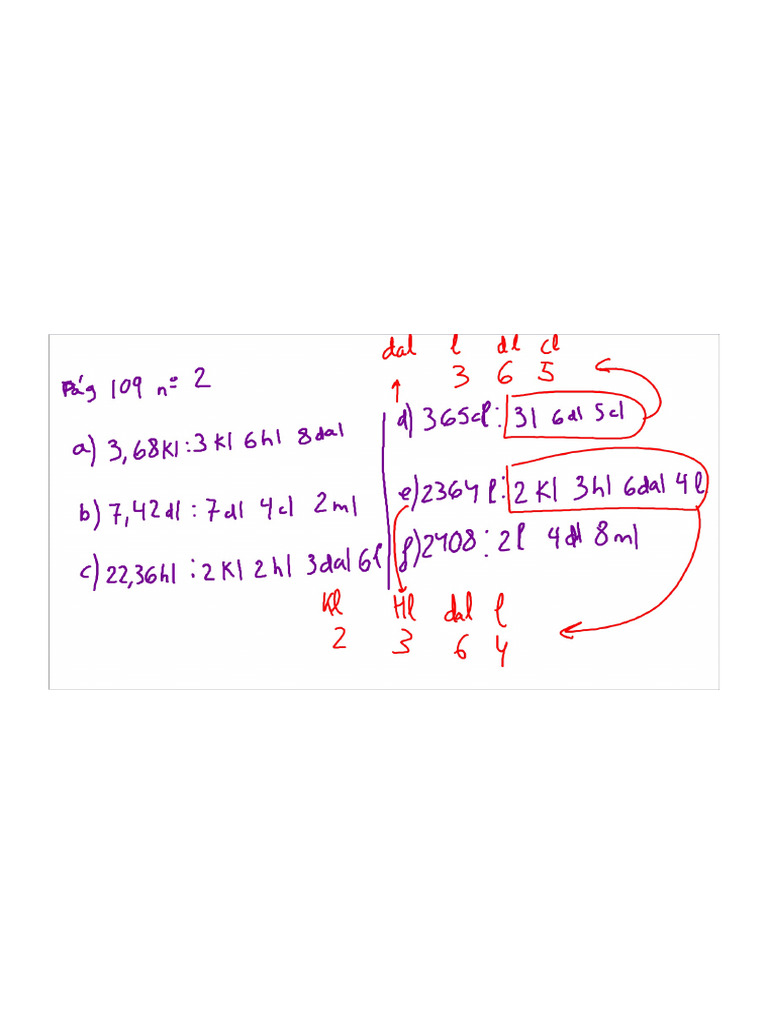 Pág 109 nº 2
a) 3,68Kl : 3 Kl 6 hl 8 dal
b) 7,42dl : 7dl 4cl 2 ml
c) 22,36hl : 2 Kl 2 hl 3dal 6l
dal l dl cl
3 6 5
d) 365cl : 3l 6dl 5cl
e) 2364 l : 2 Kl 3hl 6dal 4 l
f) 2408 : 2l 4dl 8ml
Kl Hl dal l
2 3 6 4